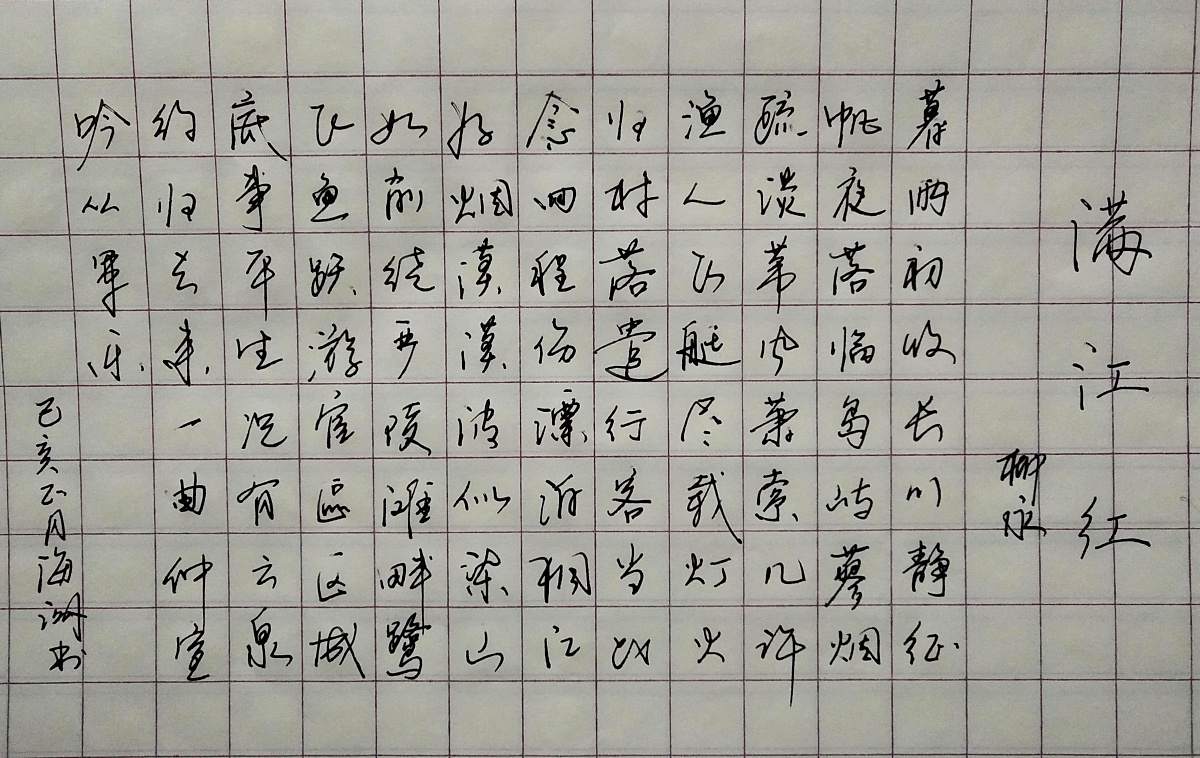 满江红
柳永
暮雨初收长川静征
帆夜落临岛屿蓼烟
疏淡苇风萧索几许
渔人飞艇尽载灯火
归村落遣行客当此
念回程伤漂泊桐江
好烟漠漠波似染山
如削绕严陵滩畔鹭
飞鱼跃游宦區区城
底事平生况有云泉
约归去来一曲仲宣
吟从军乐
己亥正月海湖书